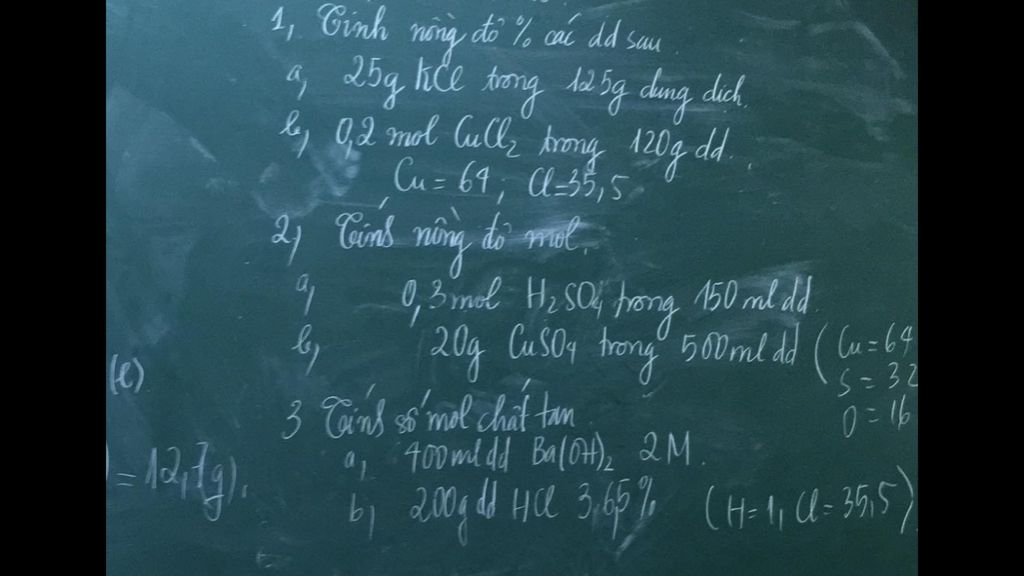 1, Tính nồng độ % các dd sau
a, 25g KCl trong 125g dung dịch.
b, 0,2 mol CuCl2 trong 120g dd.
Cu = 64, Cl=35,5
2, Tính nồng độ mol.
a, 0,3 mol H2SO4 trong 150 ml dd
b, 20g CuSO4 trong 500ml dd (Cu=64
S = 32
O = 16
(l)
3 Tính số mol chất tan
a, 400ml dd Ba(OH)2 2M.
) = 12,7(g).
b, 200g dd HCl 3,65% (H=1, Cl=35,5)